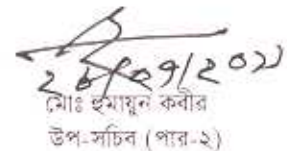 ২৮/০৭/২০২১
মোঃ হুমায়ুন কবীর
উপ-সচিব (পার-২)